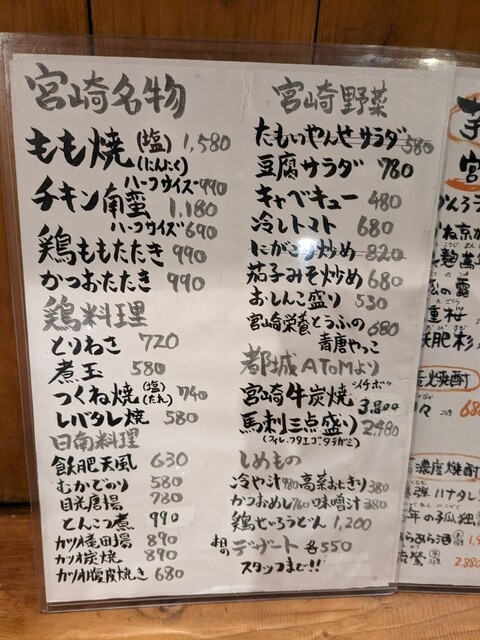 宮崎名物
もも焼(塩)(にんにく) 1,580
ハーフサイズ 990
チキン南蛮 1,180
ハーフサイズ 690
鶏ももたたき 990
かつおたたき 990
鶏料理
とりわさ 720
煮玉 580
つくね焼(塩)(たれ) 740
レバタレ焼 580
日南料理
飫肥天風 630
むかでのり 580
目光唐揚 780
とんこつ煮 990
カツオ竜田揚 890
カツオ炭焼 890
カツオ腹皮焼き 680
宮崎野菜
たもいやんせサラダ 580
豆腐サラダ 780
キャベキュー 480
冷しトマト 680
にがごり炒め 820
茄子みそ炒め 680
おしんこ盛り 530
宮崎栄養とうふの 680
青唐やっこ
都城ATOMより
"イチボ"
宮崎牛炭焼 3,800
馬刺三点盛り 2,480
(フィレ・フタエゴ・タテガミ)
しめもの
冷や汁980 高菜おにぎり380
かつおめし760 味噌汁380
鶏せいろうどん 1,200
デザート 各550
スタッフまで!!
芋
宮
重桜
飫肥杉
焼酎
濃度焼酎
ハナタレ
年の孤独
あらあら酒
2,880